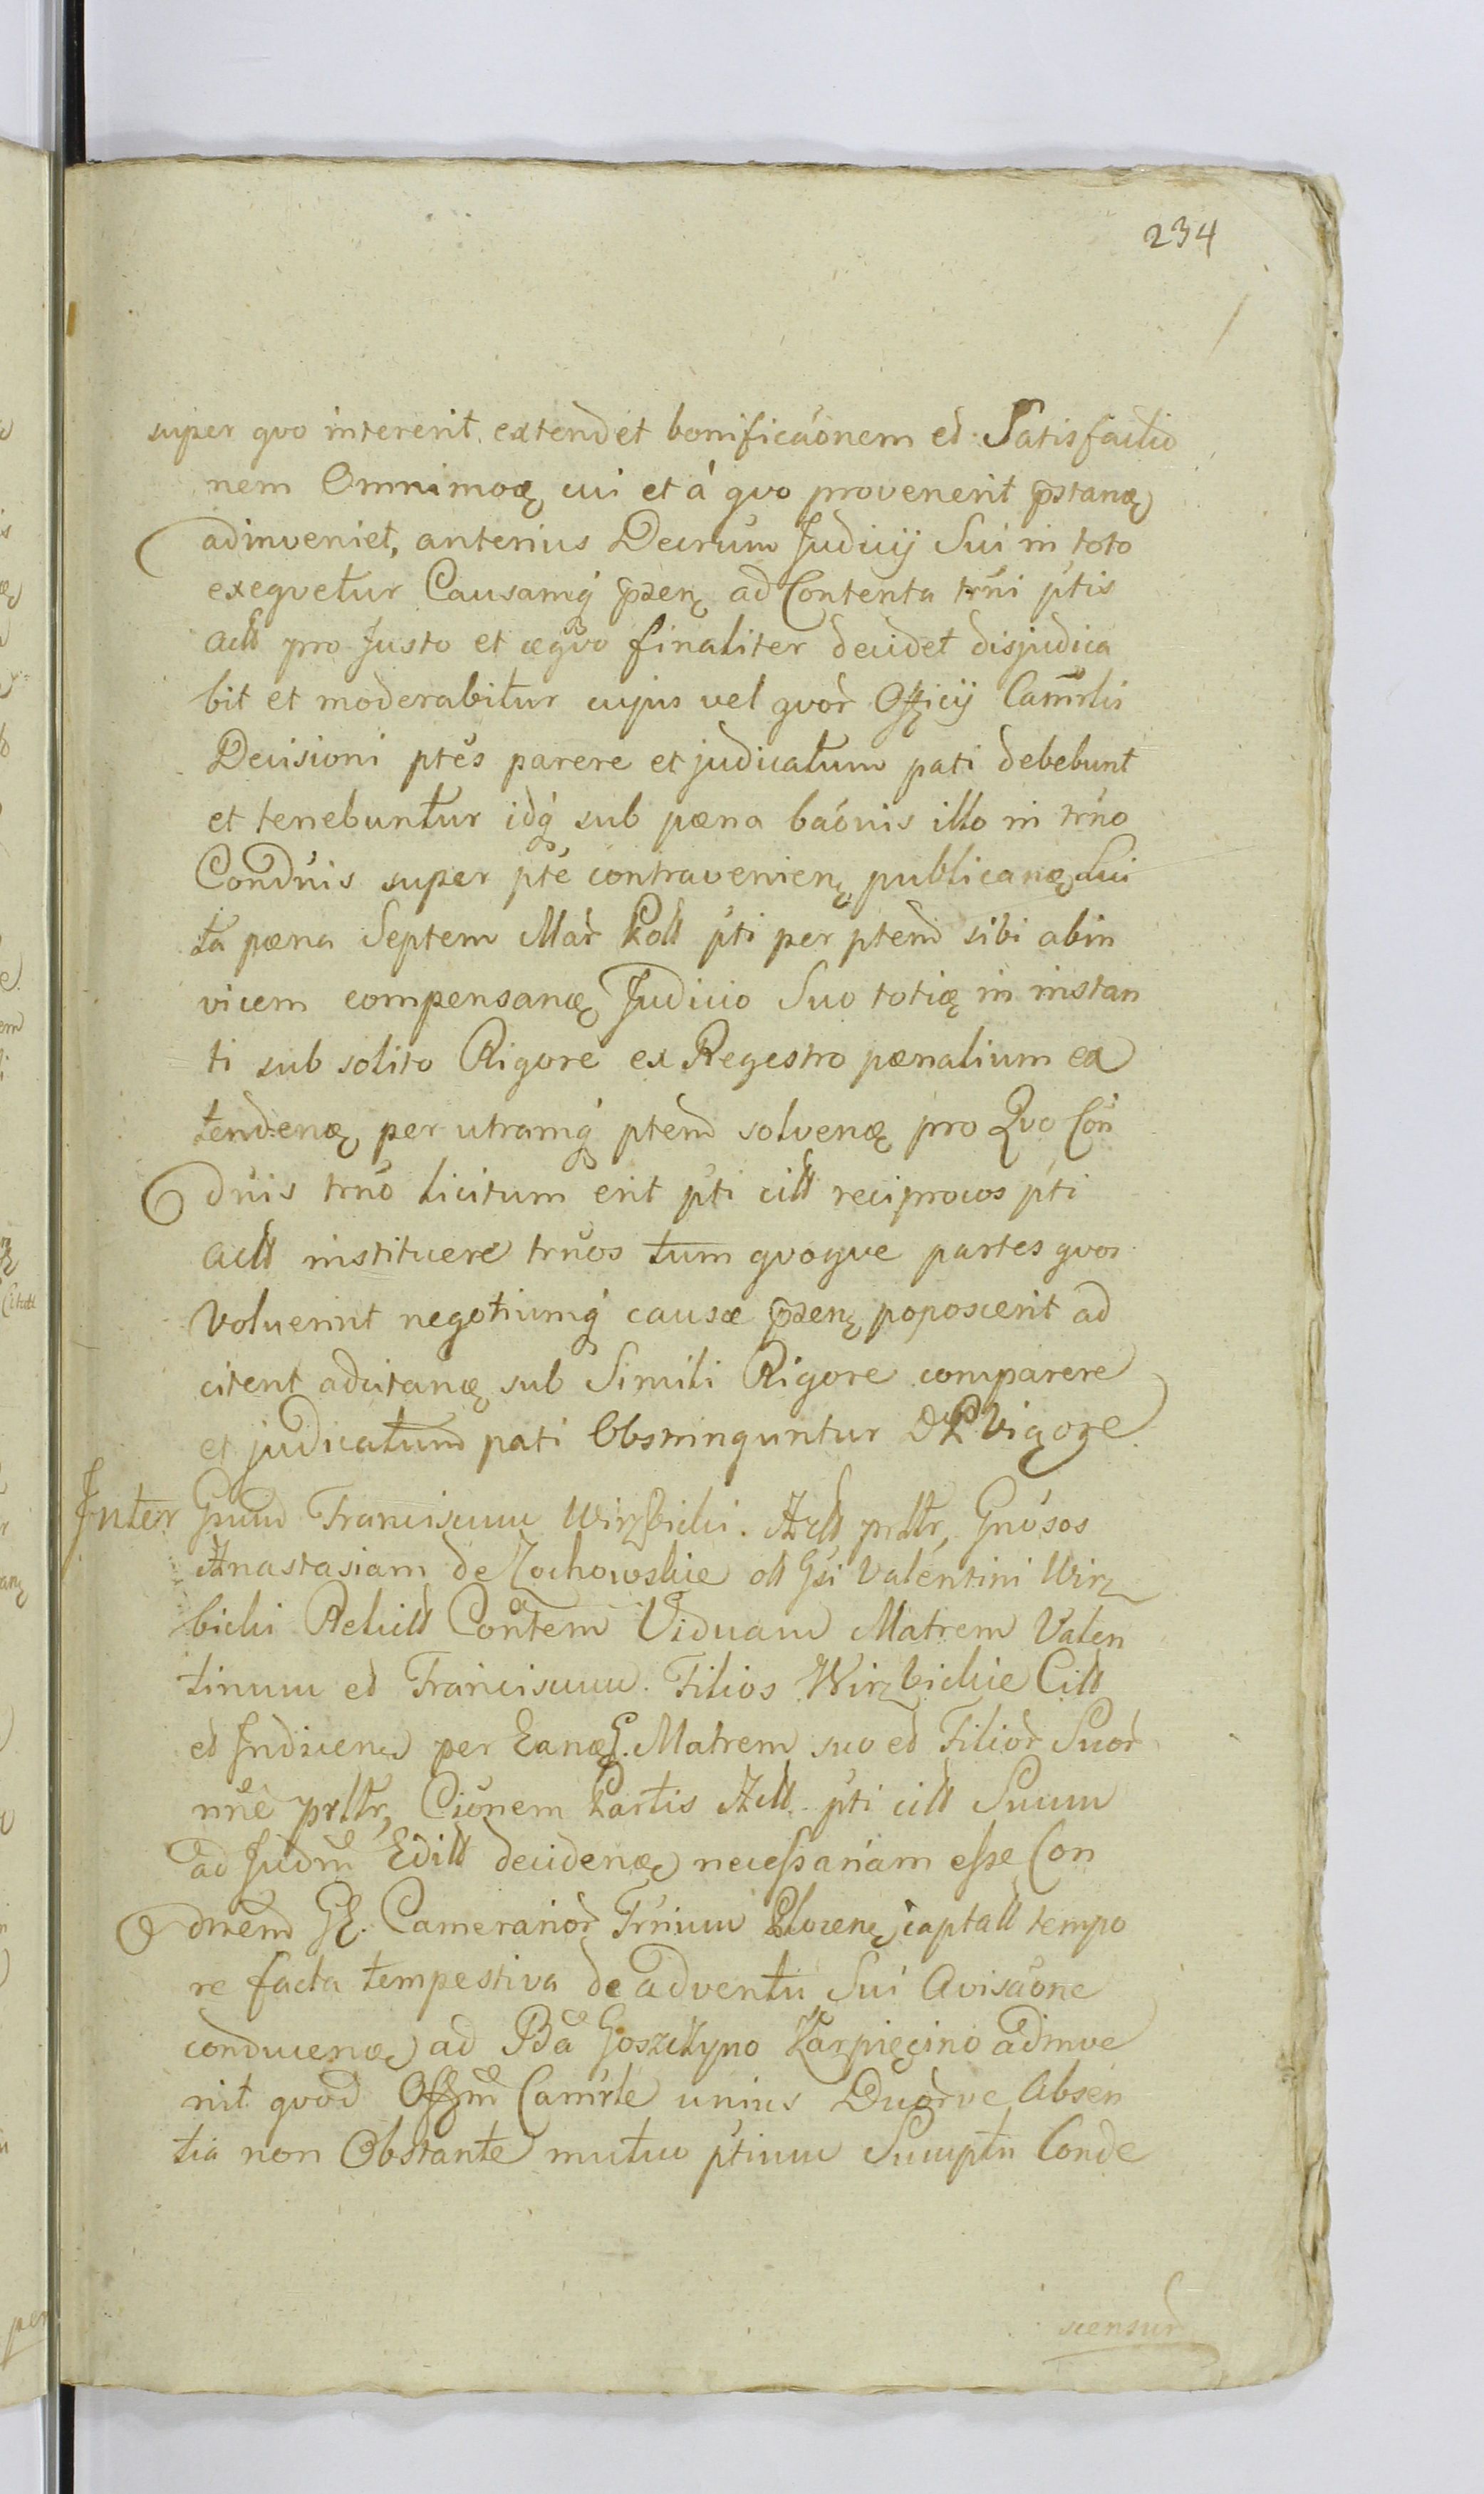 234
super qvo intererit. extendet bonificaónem et Satisfactio
nem Omnimodą cui et á qvo provenerit pstaną
adinveniet, anterius Decrum Judicij Sui in toto
exeqvetur Causamq́ pzenę ad Contenta trni ptis
actt pro Justo et æqvo finaliter decidet disjudica
bit et moderabitur cujus vel qvor Officij Camrlis
Decisioni ptes parere et judicatum pati debebunt
et tenebuntur idq́ sub pæna baónis illo in trno
Condnis super pte contravenienę publicaną Lui
ta pæna Septem Mar Poll pti per ptem sibi abin
vicem compensaną Judicio Suo totią in instan
ti sub solito Rigore ex Regestro pænalium ex
tendeną per utramq́ ptem solveną pro Qvo Con
dnis trno licitum erit pti citt reciprocos pti
actt instituere trnos tum qvoqve partes qvos
voluerint negotiumq́ causæ pzenę poposcerit ad
citent adcitaną sub Simili Rigore comparere
et judicatum pati Obstringuntur Vigore
Inter Gsum Franciscum Wirzbicki. Actt Gnósos
Anastasiam de Zochowskie oll Gsi Valentini Wirz
bicki Relictt Contem Viduam Matrem Valen
tinum et Franciscum. Filios Wirzbickie Citt
et Indicen per Eaną Matrem suo et Filior Suor
nne Cionem Partis Actt pti citt Suum
ad Judm Editt decideną necessariam esse Con
dnem Camerarior Trrium Plocenę captatt tempo
re facta tempestiva de adventu Sui Avisaóne
conduceną ad Bá Goszczyno Karpięcino adinve
nit qvod Offm Camrle unius Duorve Absen
tia non Obstante mutuo ptium Sumptu Conde
scensur